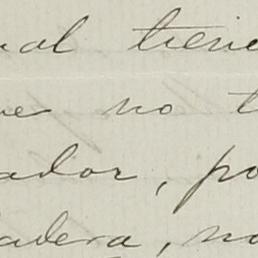 ual tiene
ue no t
ador, po
adera, no